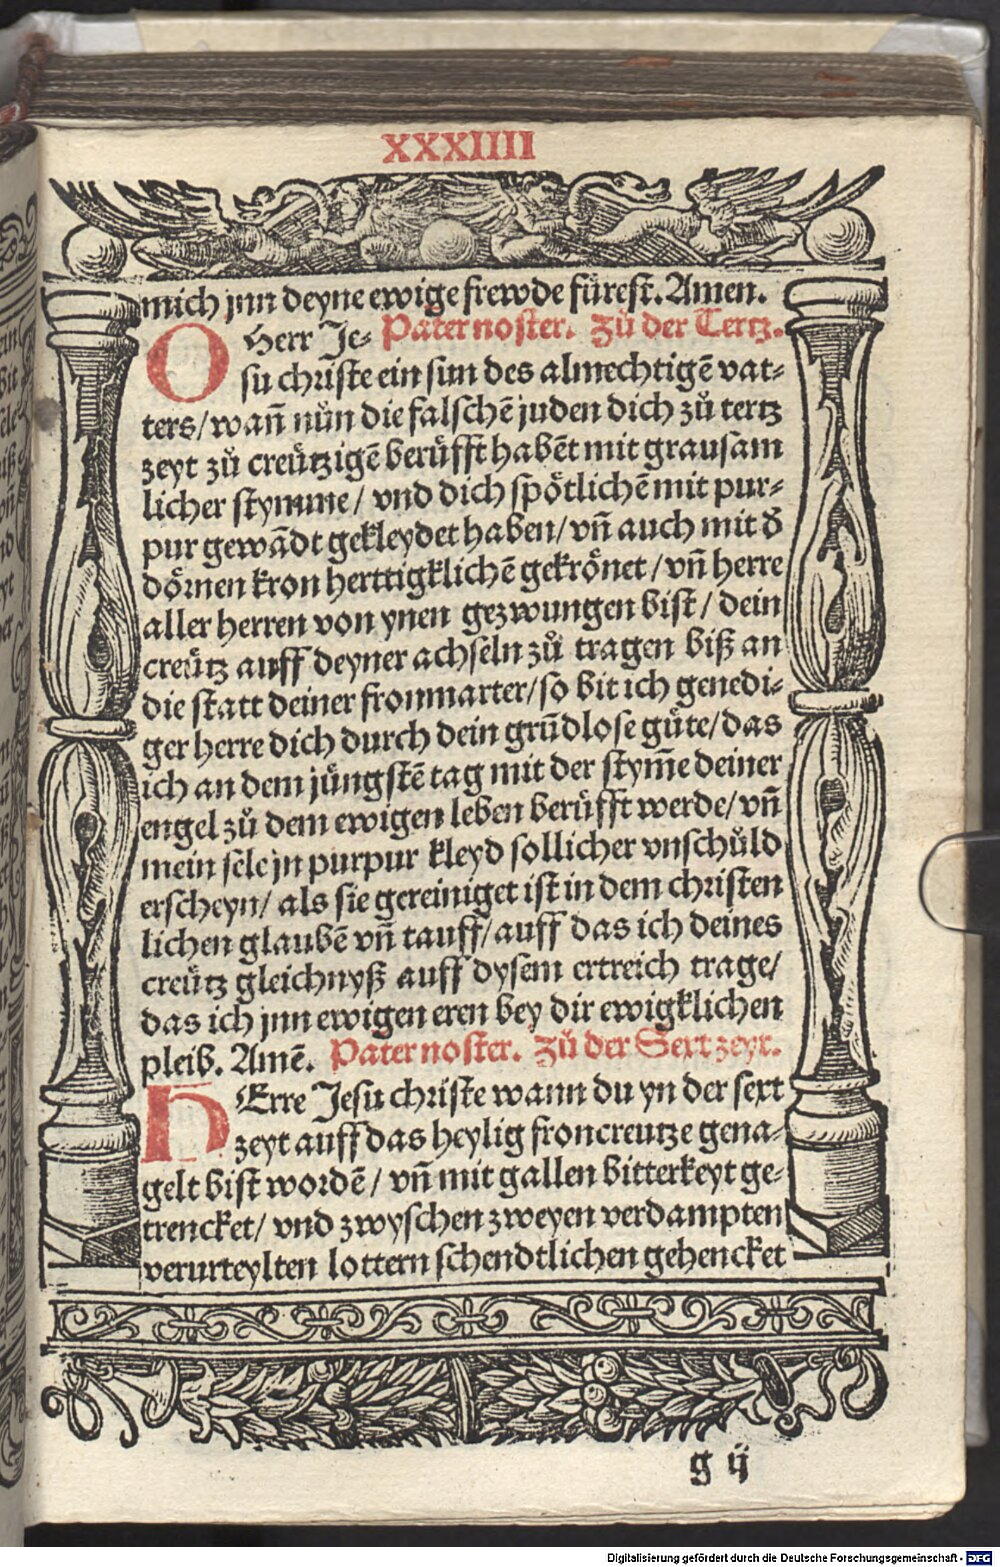 XXXIIII
mich jnn deyne ewige frewde fürest. Amen.
O Herr Je- Pater noster. Zů der Tertz.
su christe ein sun des almechtigẽ vat-
ters/ wañ nůn die falschẽ juden dich zů tertz
zeyt zů creützigẽ berüfft habẽt mit grausam
licher stymme/ vnd dich spötlichẽ mit pur-
pur gewãdt gekleydet haben/ vñ auch mit d̕
dörnen kron herttigklichẽ gekrönet/ vñ herre
aller herren von ynen gezwungen bist/ dein
creütz auff deyner achseln zů tragen biß an
die statt deiner fronmarter/ so bit ich genedi-
ger herre dich durch dein grũdlose güte/ das
ich an dem jüngstẽ tag mit der stym̃e deiner
engel zů dem ewigen leben berüfft werde/ vñ
mein sele jn purpur kleyd sollicher vnschůld
erscheyn/ als sie gereiniget ist in dem christen
lichen glaubẽ vñ tauff/ auff das ich deines
creütz gleichnyß auff dysem ertreich trage/
das ich jnn ewigen eren bey dir ewigklichen
pleib. Amẽ. Pater noster. Zů der Sext zeyt.
HErre Jesu christe wann du yn der sext
zeyt auff das heylig froncreutze gena-
gelt bist wordẽ/ vñ mit gallen bitterkeyt ge-
trencket/ vnd zwyschen zweyen verdampten
verurteylten lottern schendtlichen gehencket
g ij
Digitalisierung gefördert durch die Deutsche Forschungsgemeinschaft - DFG